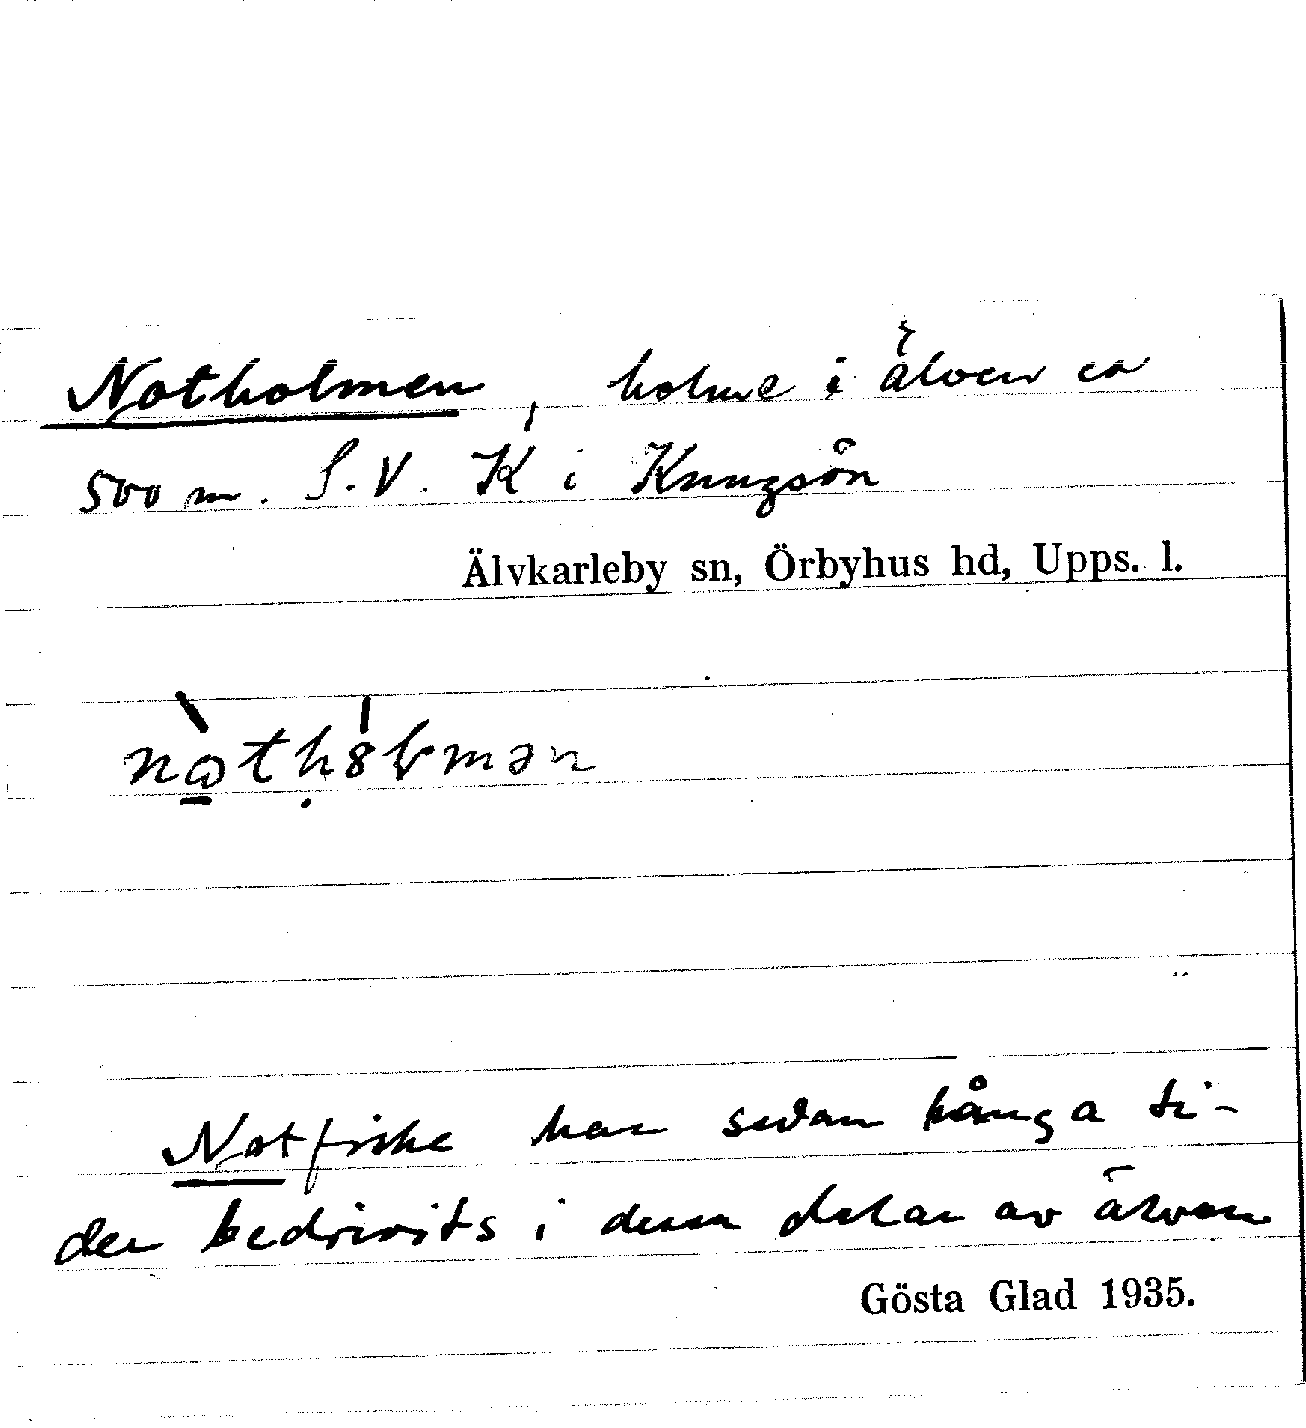 Notholmen, holme i älven ca
500 m. S.V. K i Kungsön
Älvkarleby sn, Örbyhus hd, Upps. l.
Notfiske har sedan långa ti-
der bedrivits i dessa delar av älven
Gösta Glad 1935.